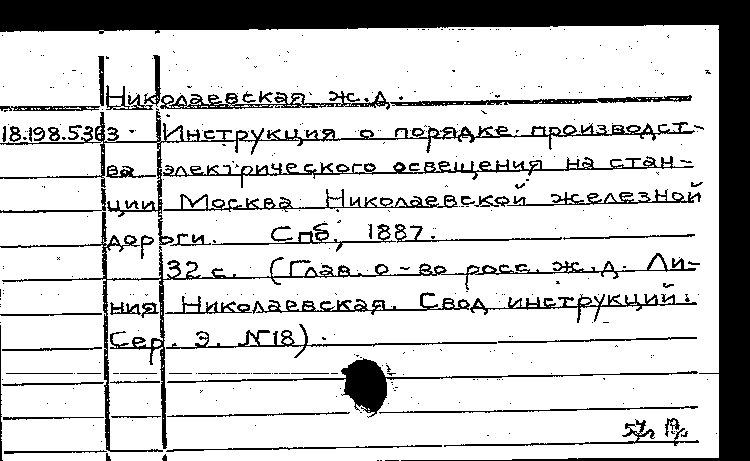 Николаевская ж.д.
18.198.5363 Инструкция о порядке производст-
ва электрического освещения на стан-
ции Москва Николаевской железной
дороги. Спб., 1887.
32 с. (Глав. о-во росс. ж.д. Ли-
ния Николаевская. Свод инструкций.
Сер. Э. №18).